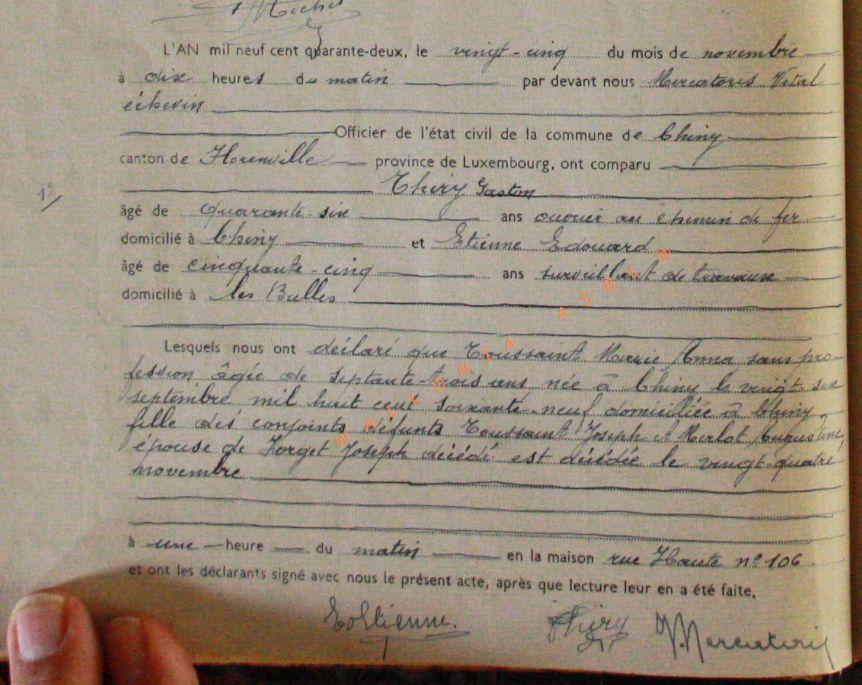 Michel
L'AN mil neuf cent quarante-deux, le vingt-cinq du mois de novembre
à dix heures du matin par devant nous Mercatoris Vital
échevin
Officier de l'état civil de la commune de Chiny
canton de Florenville province de Luxembourg, ont comparu
Thiry Gaston
1º/
âgé de quarante-six ans ouvrier au chemin de fer
domicilié à Chiny et Etienne Edouard
âgé de cinquante-cinq ans surveillant de travaux
domicilié à les Bulles
Lesquels nous ont déclaré que Toussaint Marie Anna sans pro-
fession âgée de septante-trois ans née à Chiny le vingt six
septembre mil huit cent soixante neuf domiciliée à Chiny,
fille des conjoints défunts Toussaint Joseph et Merlot Augustine,
épouse de Forget Joseph décédé est décédée le vingt-quatre
novembre
à une heure du matin en la maison rue Haute nº 106
et ont les déclarants signé avec nous le présent acte, après que lecture leur en a été faite.
EdEtienne. Thiry V. Mercatoris
WALLONIA ASBL